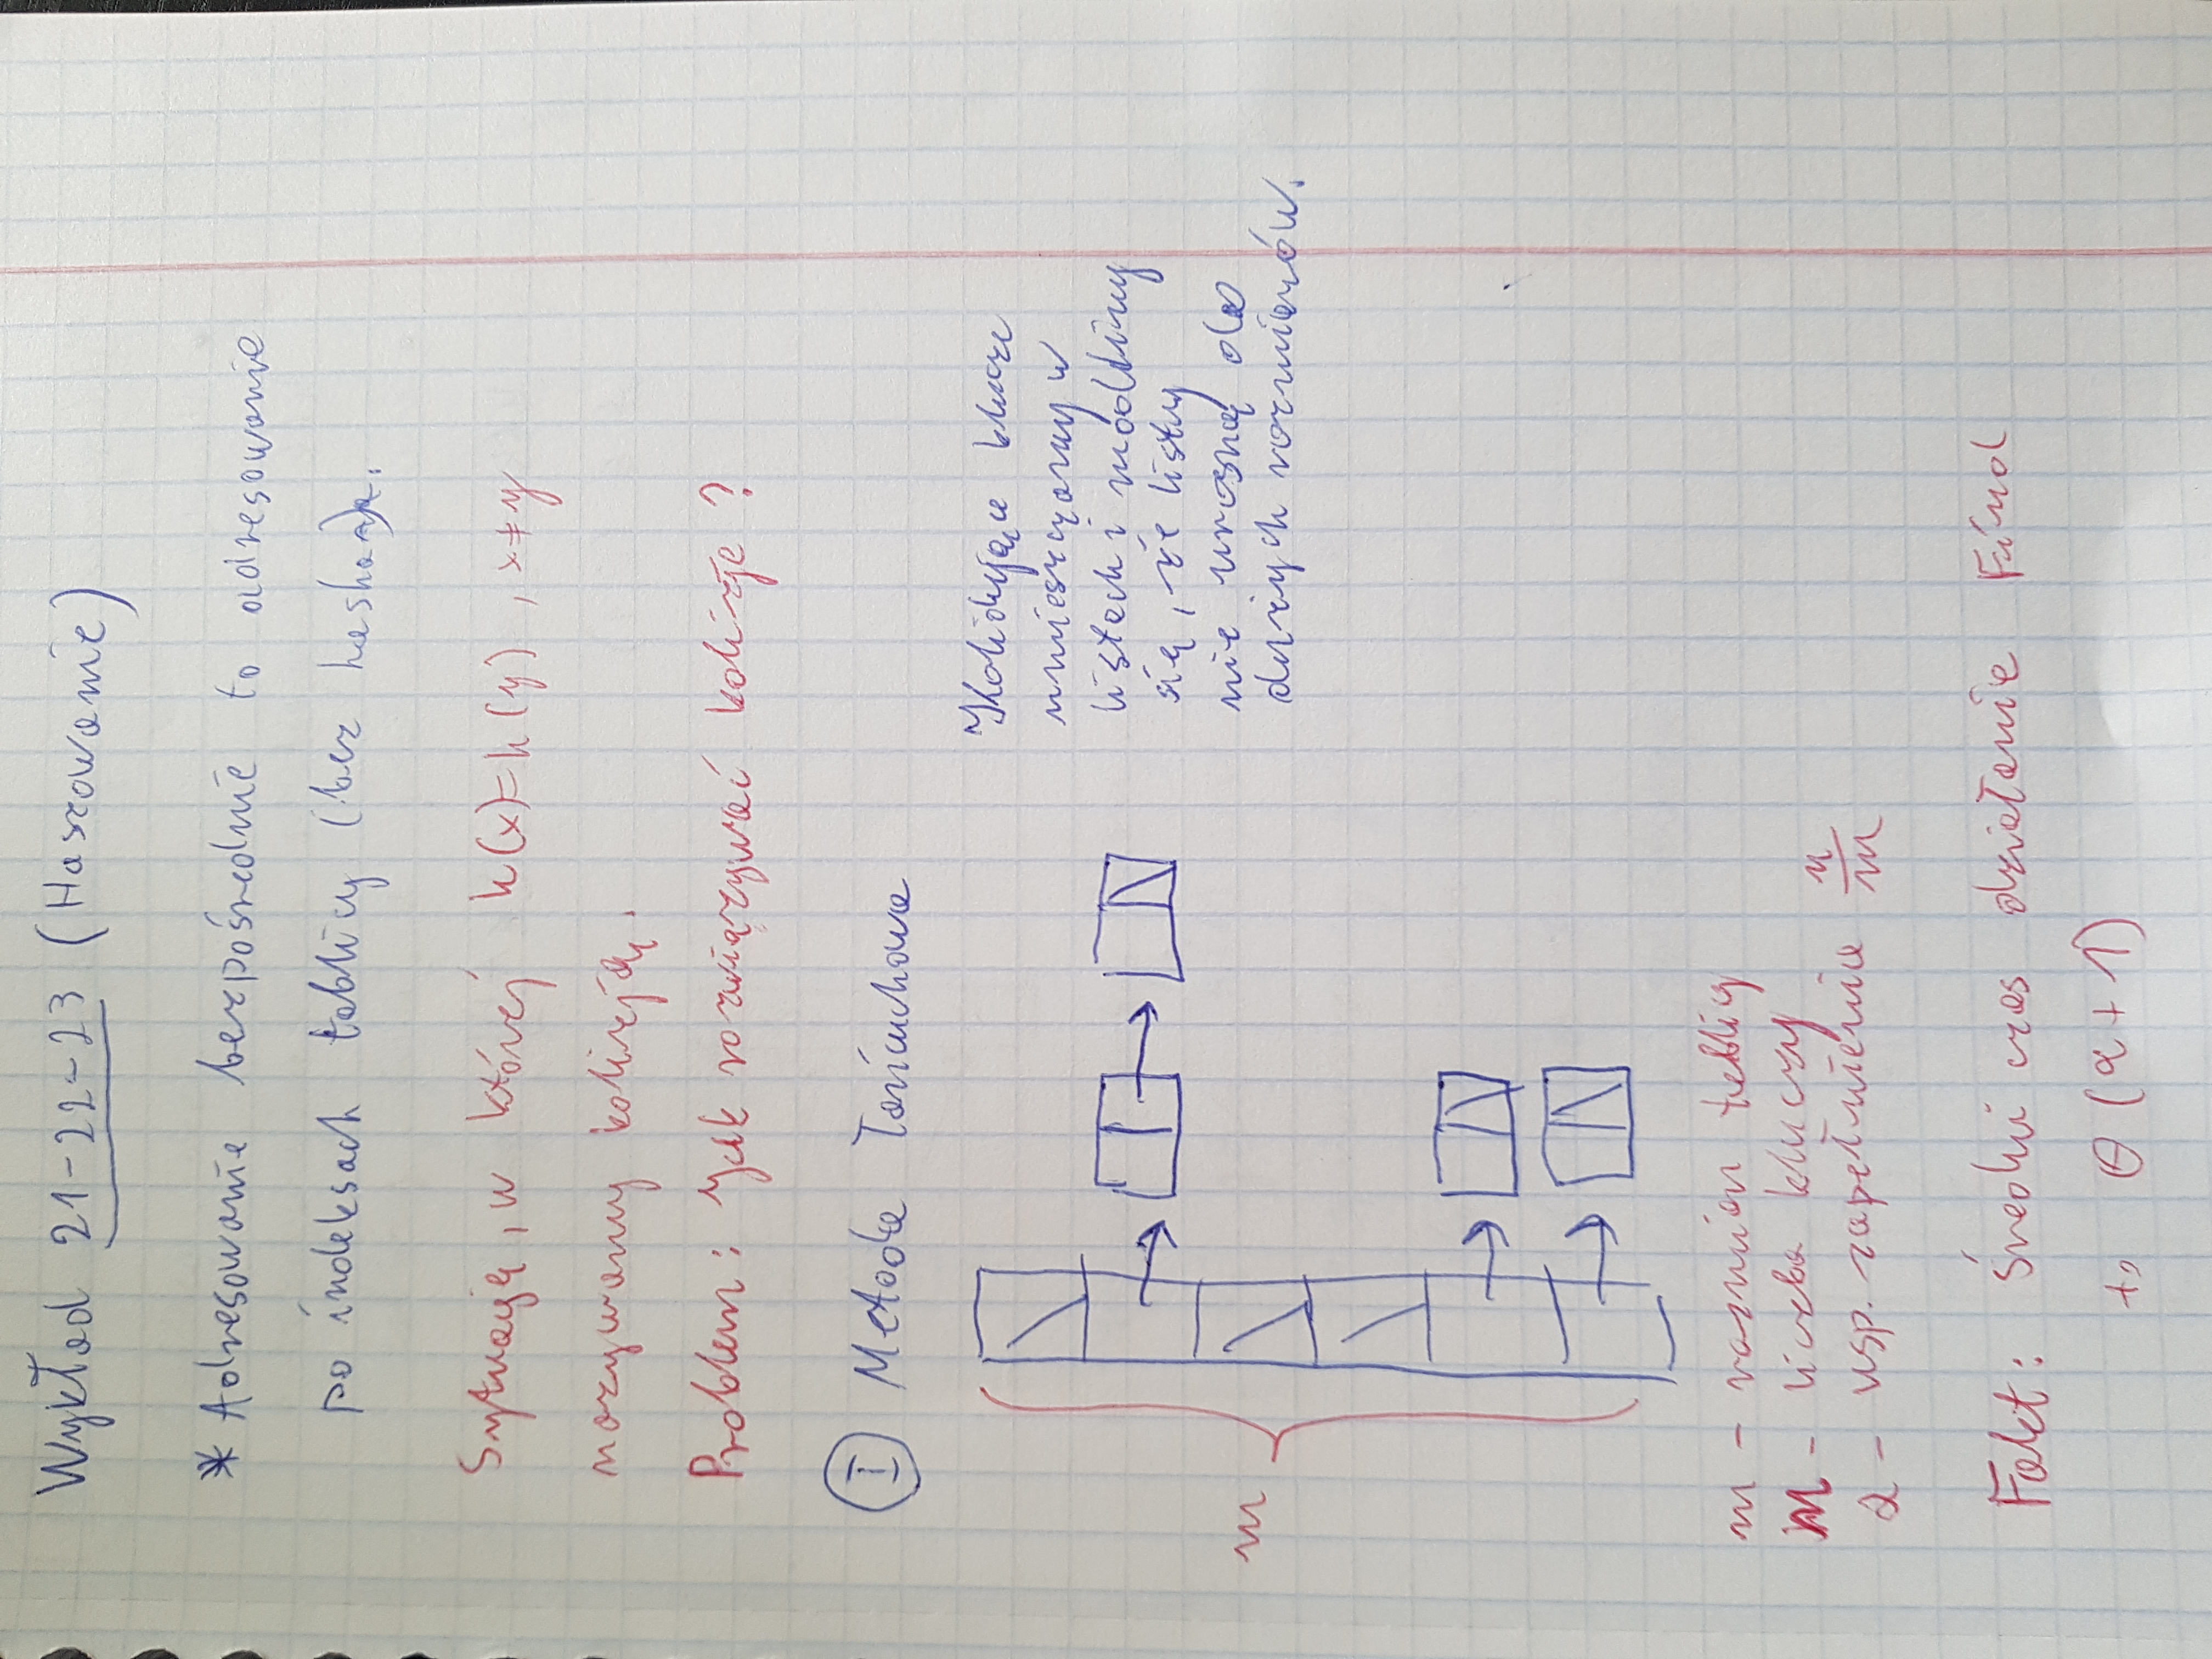 Wykład 21-22-23 (Haszowanie)
* Adresowanie bezpośrednie to adresowanie
po indeksach tablicy (bez hasha).
Sytuację, w której h(x)=h(y), x≠y
nazywamy kolizją.
Problem: jak rozwiązywać kolizje?
I Metoda łańcuchowa
m
Kolidujące klucze
umieszczamy w
listach i modlimy
się, że listy
nie urosną do
dużych rozmiarów.
m - rozmiar tablicy
n - liczba kluczy
α - wsp. zapełnienia n/m
Fakt: Średni czas działania Find
to Θ(α+1)